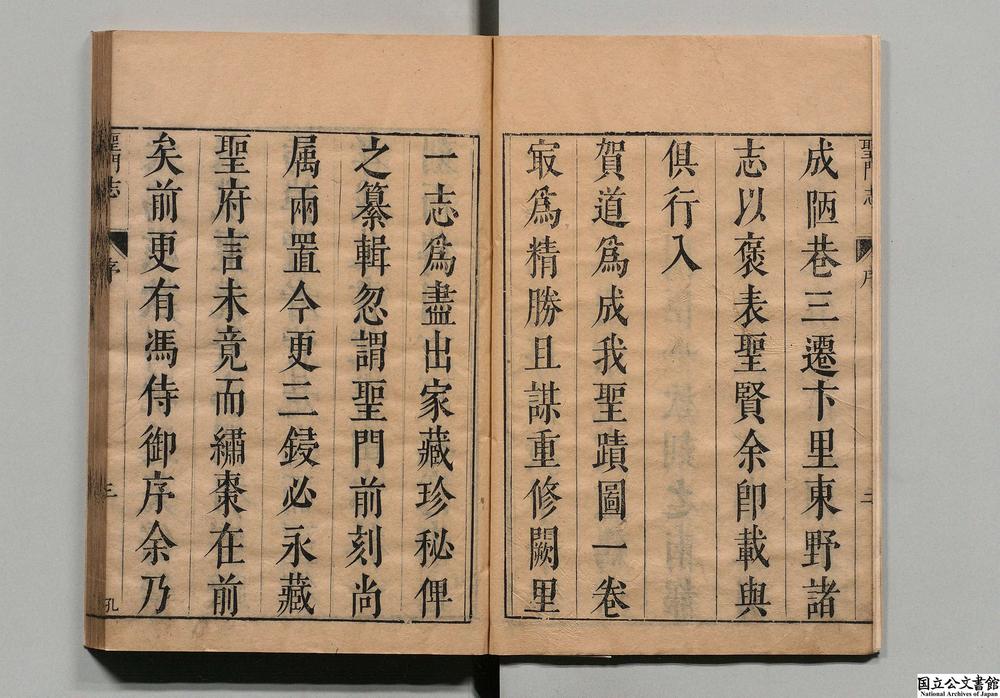 聖門志
序
二
成陋巷三遷卞里東野諸
志以褒表聖賢余卽載與
俱行入
賀道爲成我聖蹟圖一卷
㝡爲精勝且謀重修闕里
一志爲盡出家藏珍秘俾
之纂輯忽謂聖門前刻尚
属兩置今更三鋟必永藏
聖府言未竟而繡棗在前
矣前更有馮侍御序余乃
聖門志
序
三
孔
国立公文書館
National Archives of Japan